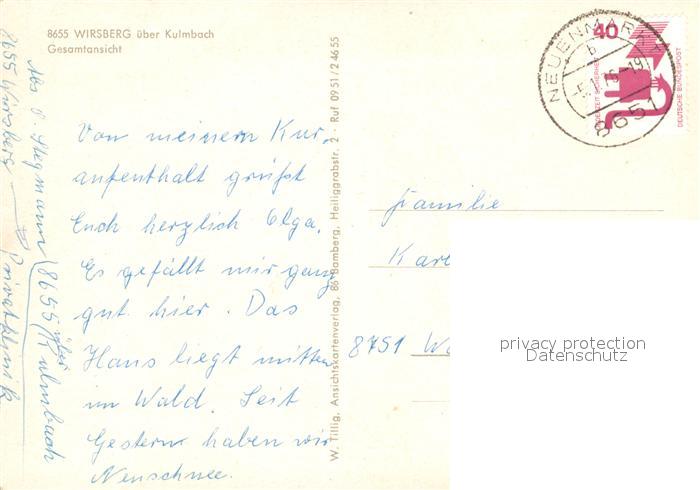 8655 WIRSBERG über Kulmbach
Gesamtansicht
Von meinem Kur-
aufenthalt grüßt
Euch herzlich Olga.
Es gefällt mir ganz
gut hier. Das
Haus liegt mitten
im Wald. Seit
Gestern haben wir
Neuschnee.
Abs O Stegmann
8655 Wirsberg
(8655 über Kulmbach
Privatklinik
W. Tillig, Ansichtskartenverlag, 86 Bamberg, Heiliggrabstr. 2 · Ruf 09 51 / 2 46 55
Familie
8751
privacy protection
Datenschutz
NEUENMARKT
b
8651
40
JEDERZEIT SICHERHEIT
DEUTSCHE BUNDESPOST